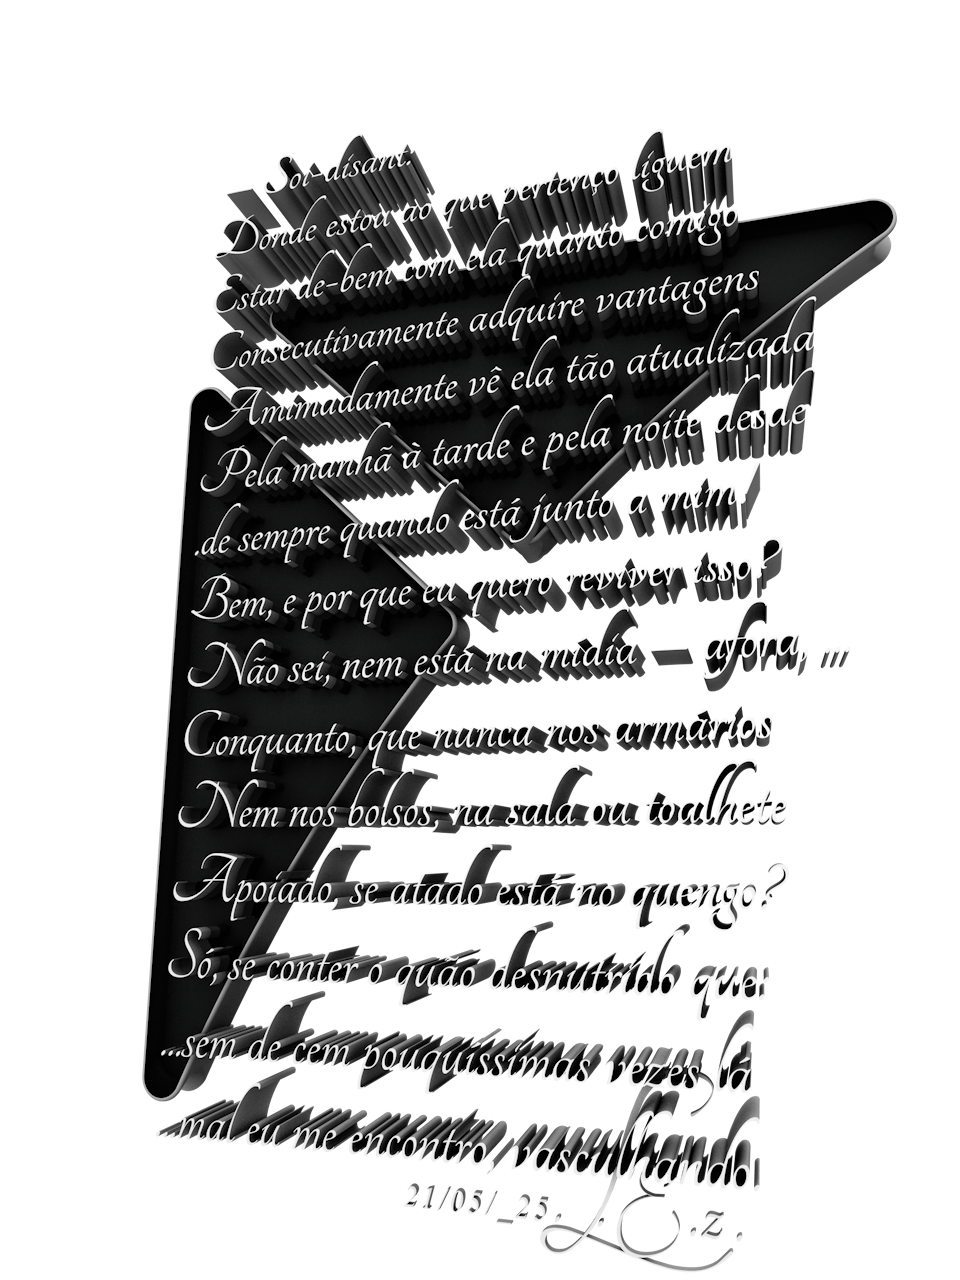 Soi-disant:
Donde estou ao que pertenço liguem
Estar de-bem com ela quanto comigo
Consecutivamente adquire vantagens
Amimadamente vê ela tão atualizada
Pela manhã à tarde e pela noite desde
.de sempre quando está junto a mim.
Bem, e por que eu quero reviver isso?
Não sei, nem está na mídia — afora, ...
Conquanto, que nunca nos armários
Nem nos bolsos, na sala ou toalhete
Apoiado, se atado está no quengo?
Só, se conter o quão desnutrido quer
...sem de cem pouquíssimas vezes lá
mal eu me encontro, vasculhando
21/05/_25. L.E.z.